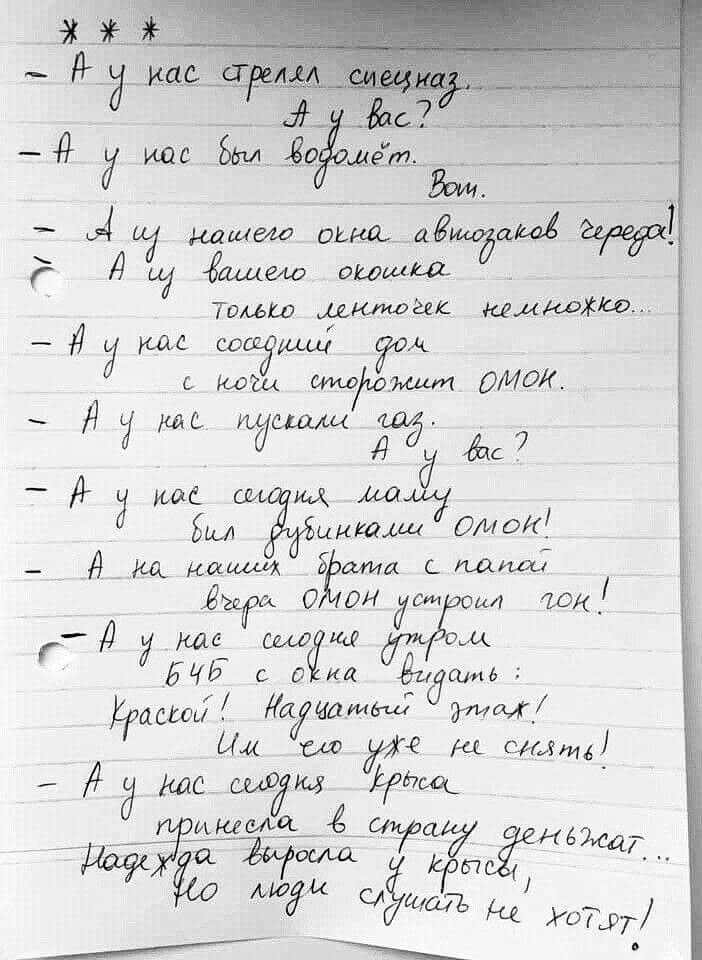 * * *
- А у нас стрелял спецназ.
А у вас?
- А у нас был водомёт.
Вот.
- А из нашего окна автозаков череда!
- А из вашего окошка
только ленточек немножко...
- А у нас соседний дом
с ночи сторожит ОМОН.
- А у нас пускали газ.
А у вас?
- А у нас сегодня маму
бил дубинками ОМОН!
- А на наших брата с папой
вчера ОМОН устроил гон!
- А у нас сегодня утром
БЧБ с окна видать:
Краской! Надцатый этаж!
Им его уже не снять!
- А у нас сегодня крыса
принесла в страну деньжат...
Надежда выросла у крысы,
Но люди слушать не хотят!